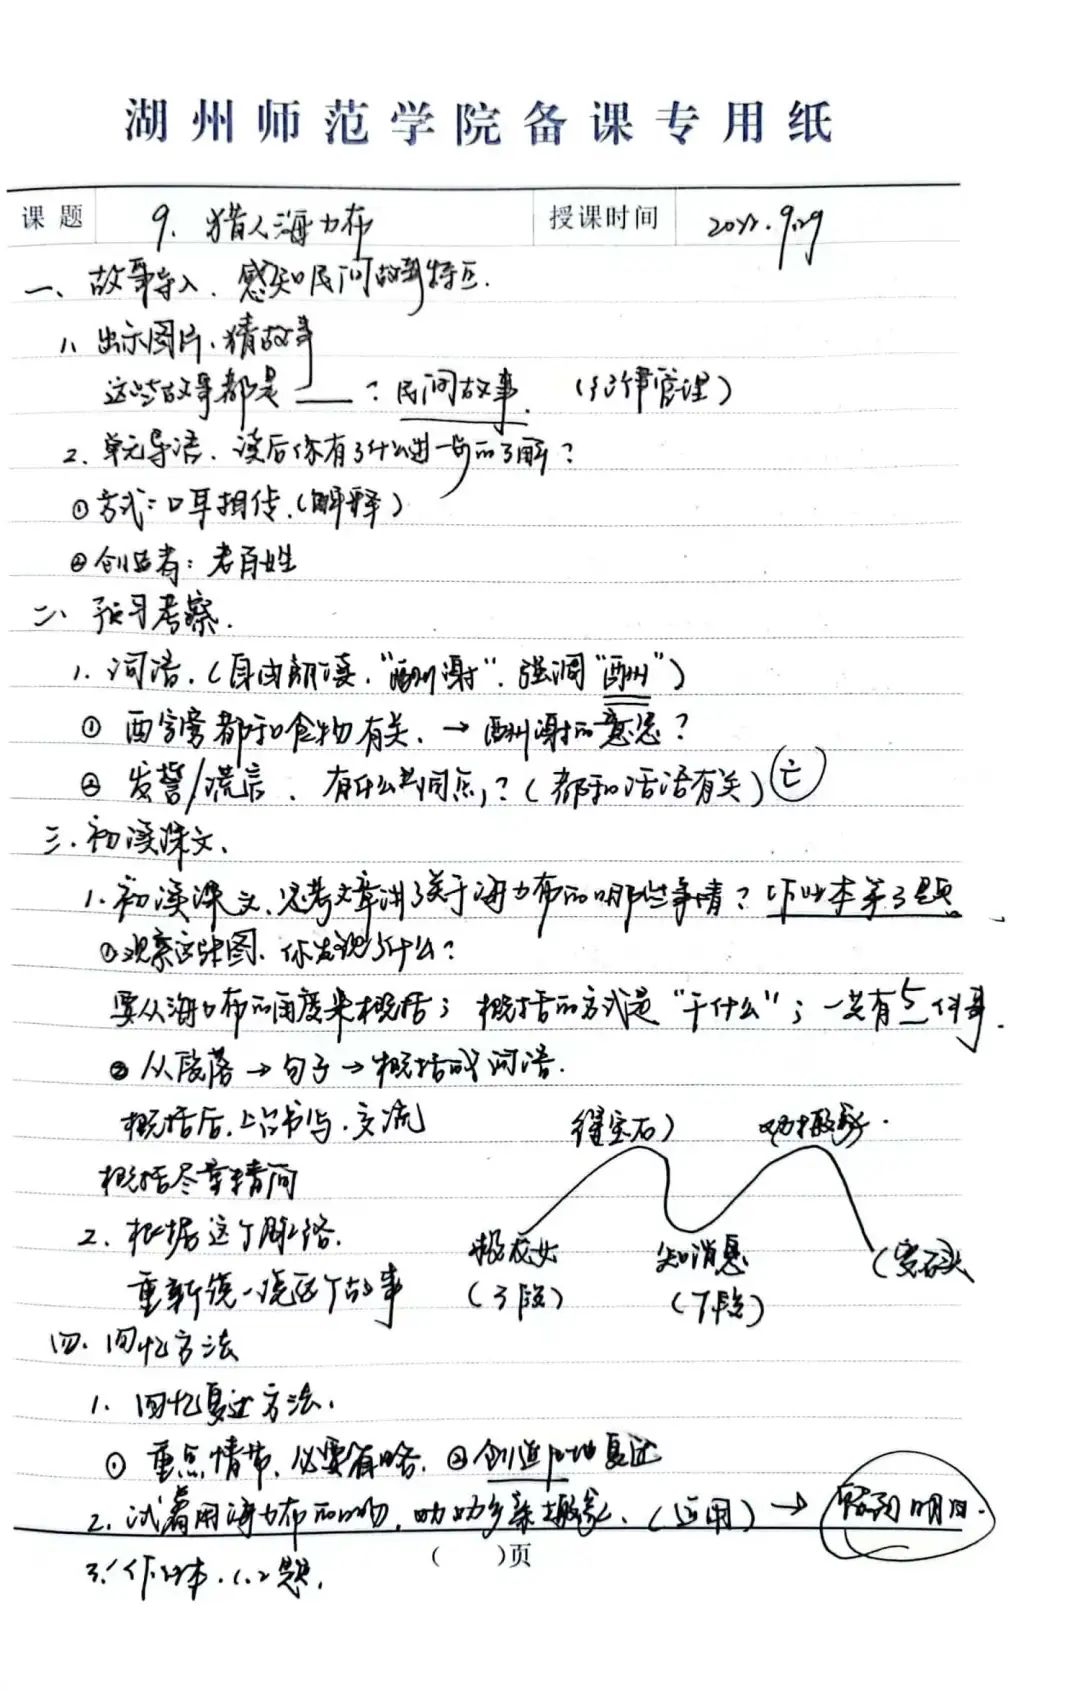 湖州师范学院备课专用纸
课题 9. 猎人海力布 授课时间 2022.9.29
一、故事导入、感知民间故事特点.
1、出示图片、猜故事
这些故事都是____?民间故事. (纪律管理)
2、单元导语、读后你有了什么进一步的了解?
①方式:口耳相传.(解释)
②创造者:老百姓
二、预习考察.
1.词语.(自由朗读,"酬谢".强调"酬")
① 酉字旁都和食物有关.→酬谢的意思?
② 发誓/谎言、有什么共同点?(都和话语有关) 亡
三.初读课文、
1.初读课文、思考文章讲了关于海力布的哪些事情?作业本第3题。
①观察这张图、你发现了什么?
要从海力布的角度来概括;概括的方式是"干什么";一共有5件事.
②从段落→句子→概括成词语.
概括后,上台书写.交流
概括尽量精简
得宝石) 劝搬家.
救龙女 知消息 (变石头
(3段) (7段)
2.根据这个脉络.
重新读一读这个故事
四、回忆方法
1.回忆复述方法.
① 重点情节、必要省略.②创造性地复述
2.试着用海力布的口吻,劝劝乡亲搬家、(运用)→
3.作业本.1.2题.
( )页